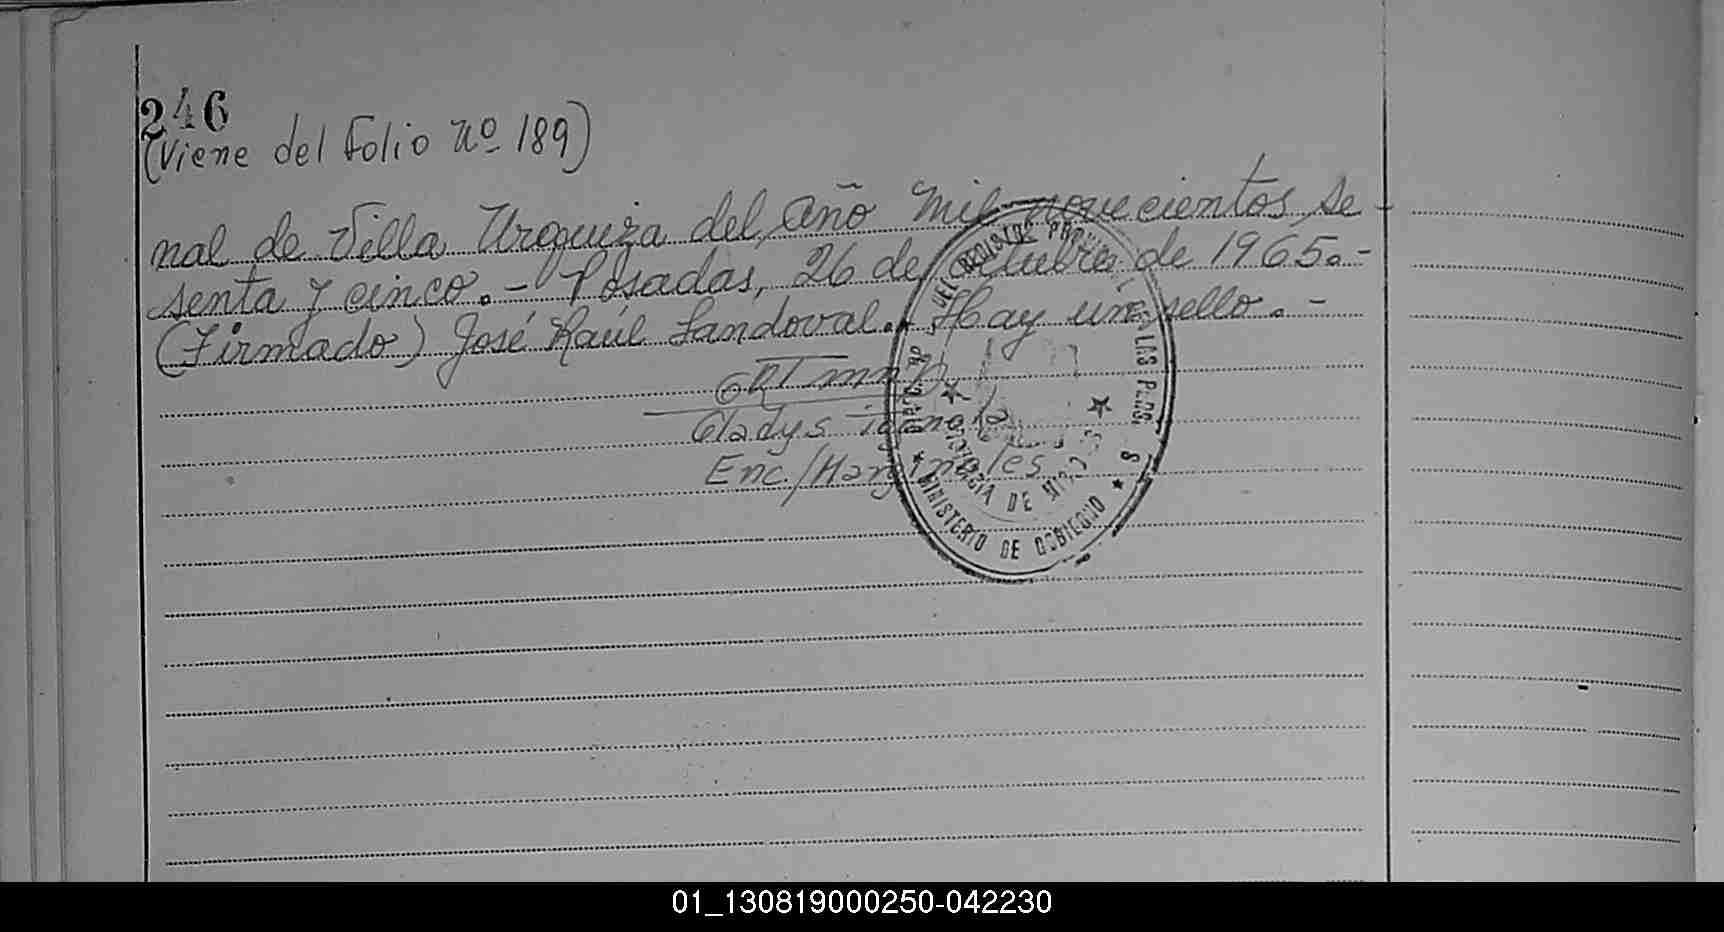 246
(Viene del Folio Nº 189)
nal de Villa Urquiza del año mil novecientos se-
senta y cinco.- Posadas, 26 de octubre de 1965.-
(Firmado) José Raúl Sandoval. Hay un sello.-
Gladys
Enc./Marginales
REGISTRO PROVINCIAL DE LAS PERS
PROVINCIA DE MISIONES
MINISTERIO DE GOBIERNO
01_130819000250-042230